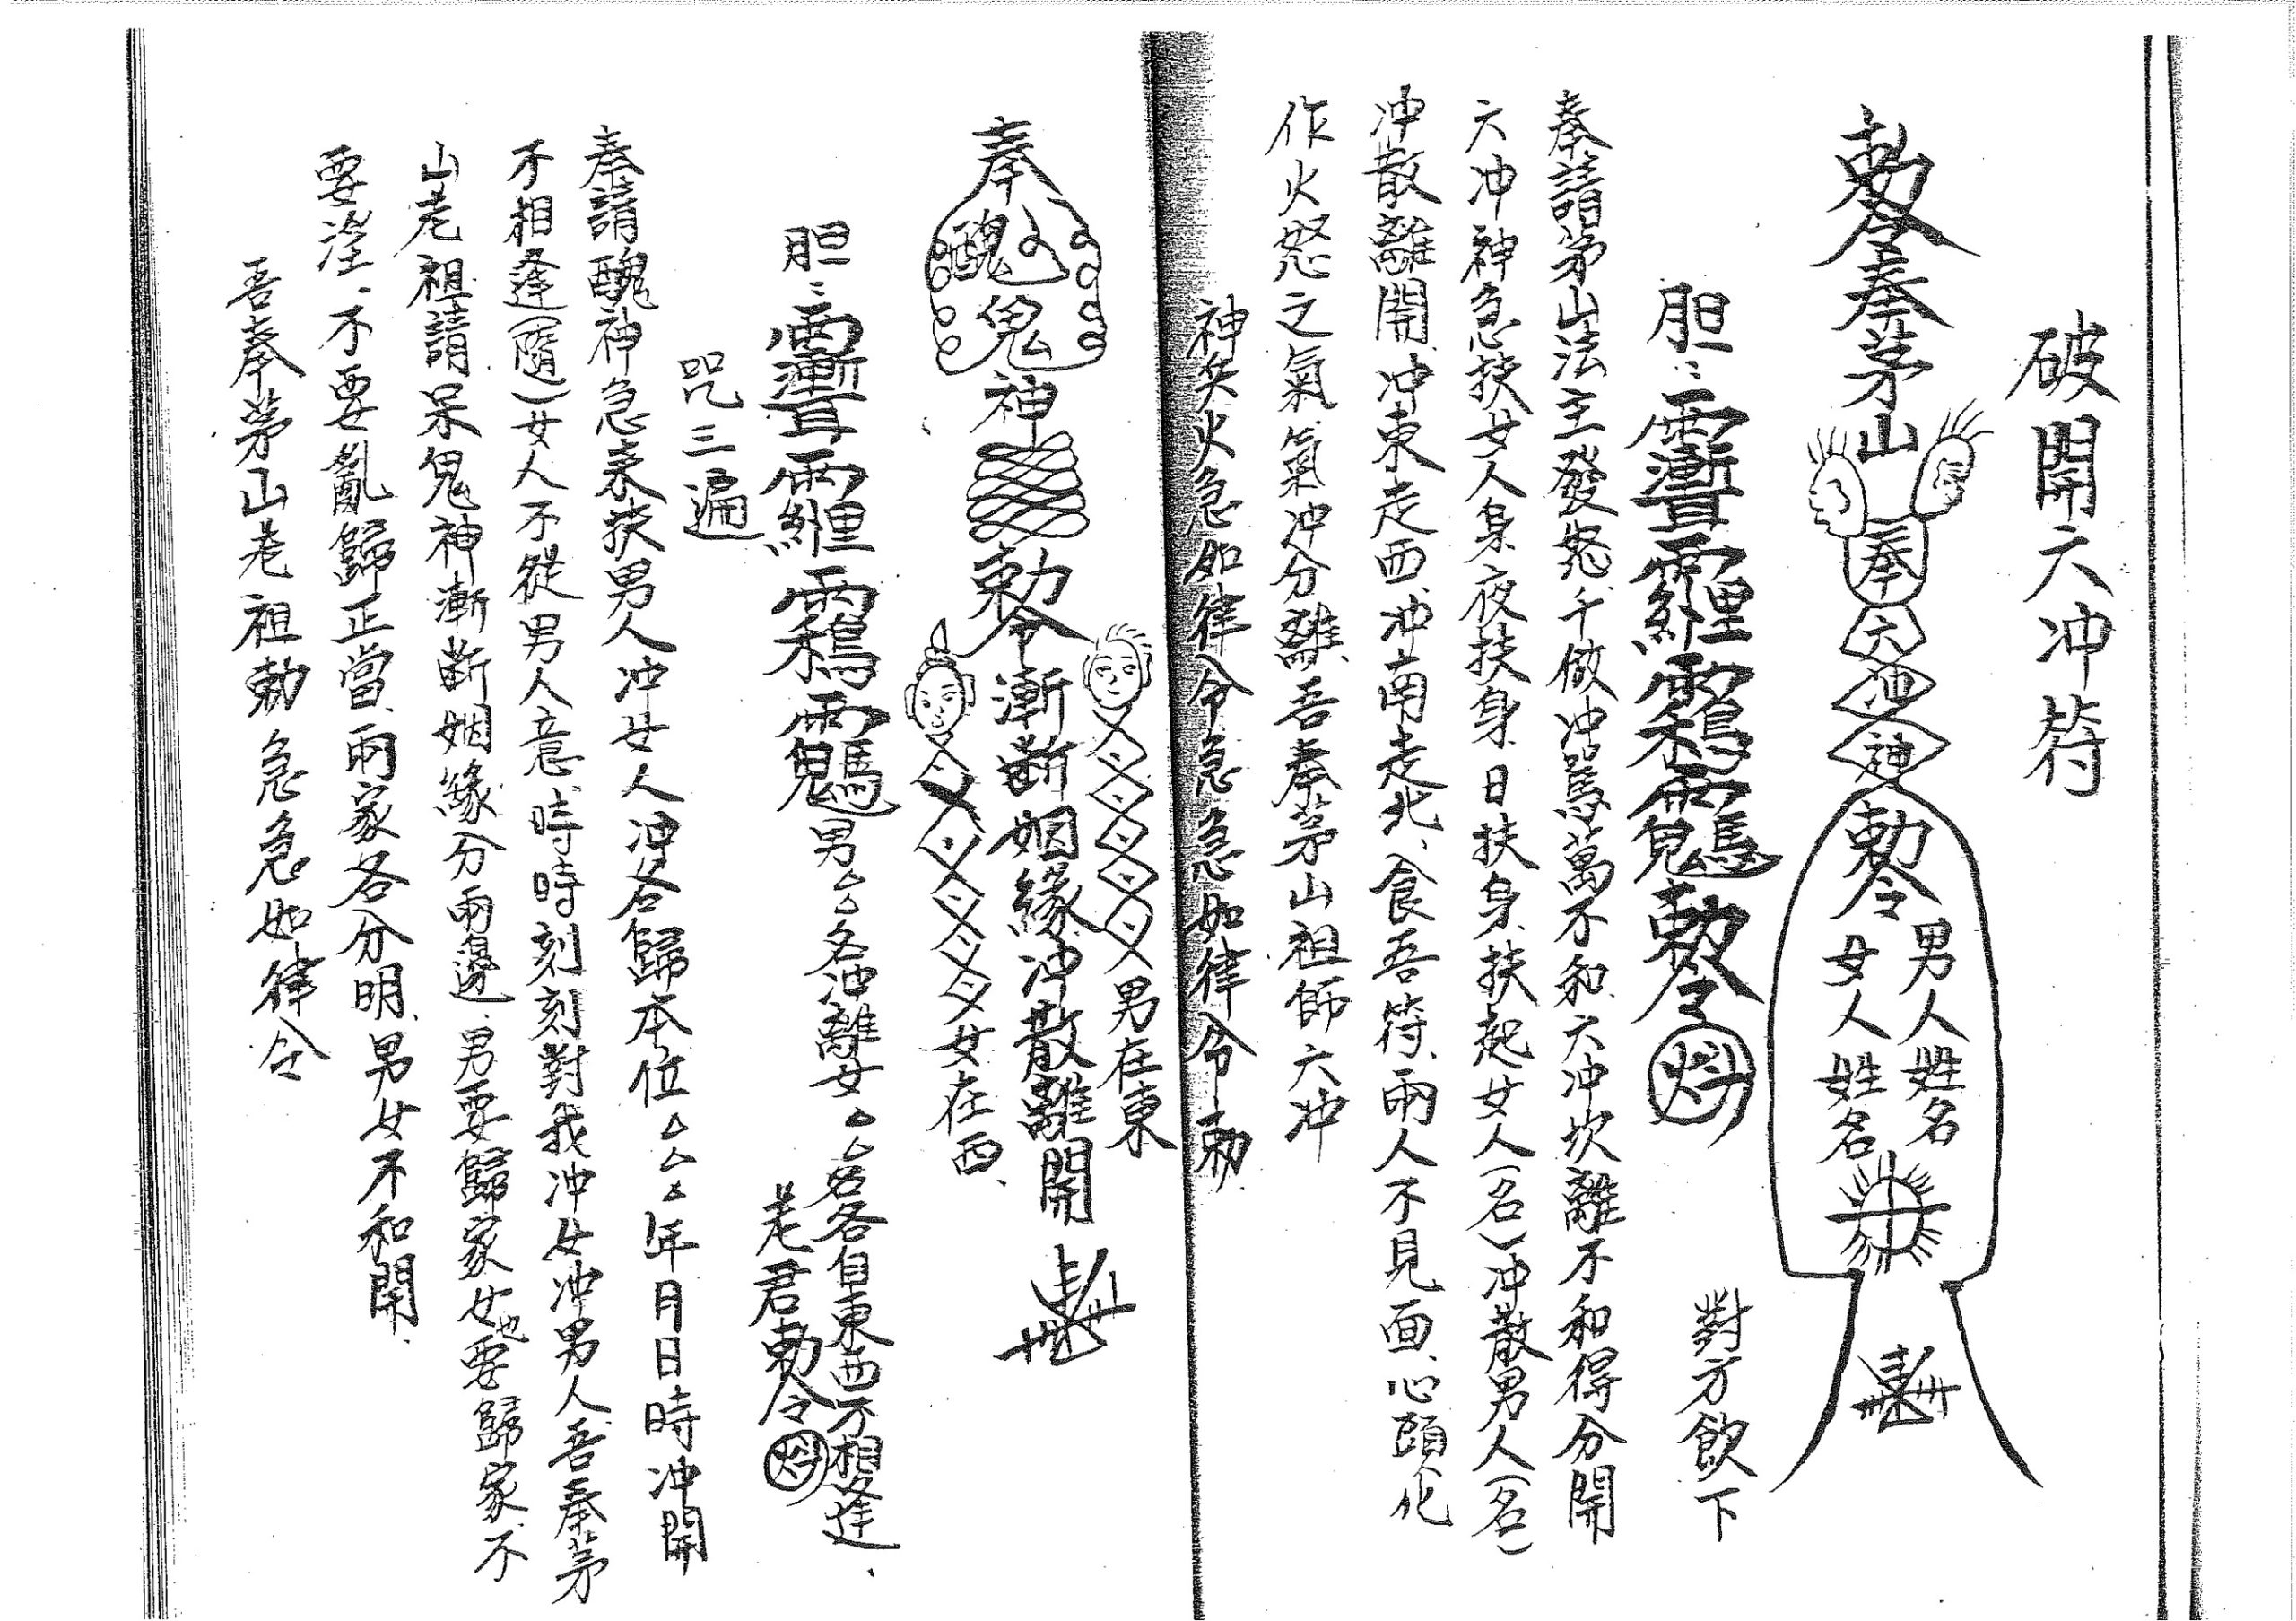 破開六冲符
勅令奉茅山
奉六冲神勅令
男人姓名
女人姓名
對方飲下
胆
勅令
奉請茅山法主發怒千做冲罵萬不和六冲坎離不和得分開
六冲神急扶女人身、夜扶身、日扶身、扶起女人(名)冲散男人(名)
冲散離開、冲東走西、冲南走北、食吾符、兩人不見面、心頭化
作火怒之氣、氣冲分離、吾奉茅山祖師六冲
神兵火急如律令急急如律令勅
男在東
奉醜鬼神勅令漸断姻緣冲散離開
女在西、
胆
男△△名冲離女△△名各自東西不相逢、
老君勅令
咒三遍
奉請醜神急来扶男人冲女人冲各歸本位△△△年月日時冲開
不相逢(隨)女人不從男人意、時時刻刻對我冲女冲男人吾奉茅
山老祖請呆鬼神漸断姻緣分兩邊、男要歸家女也要歸家、不
要淫、不要亂歸正當、兩家各分明、男女不和開、
吾奉茅山老祖勅急急如律令